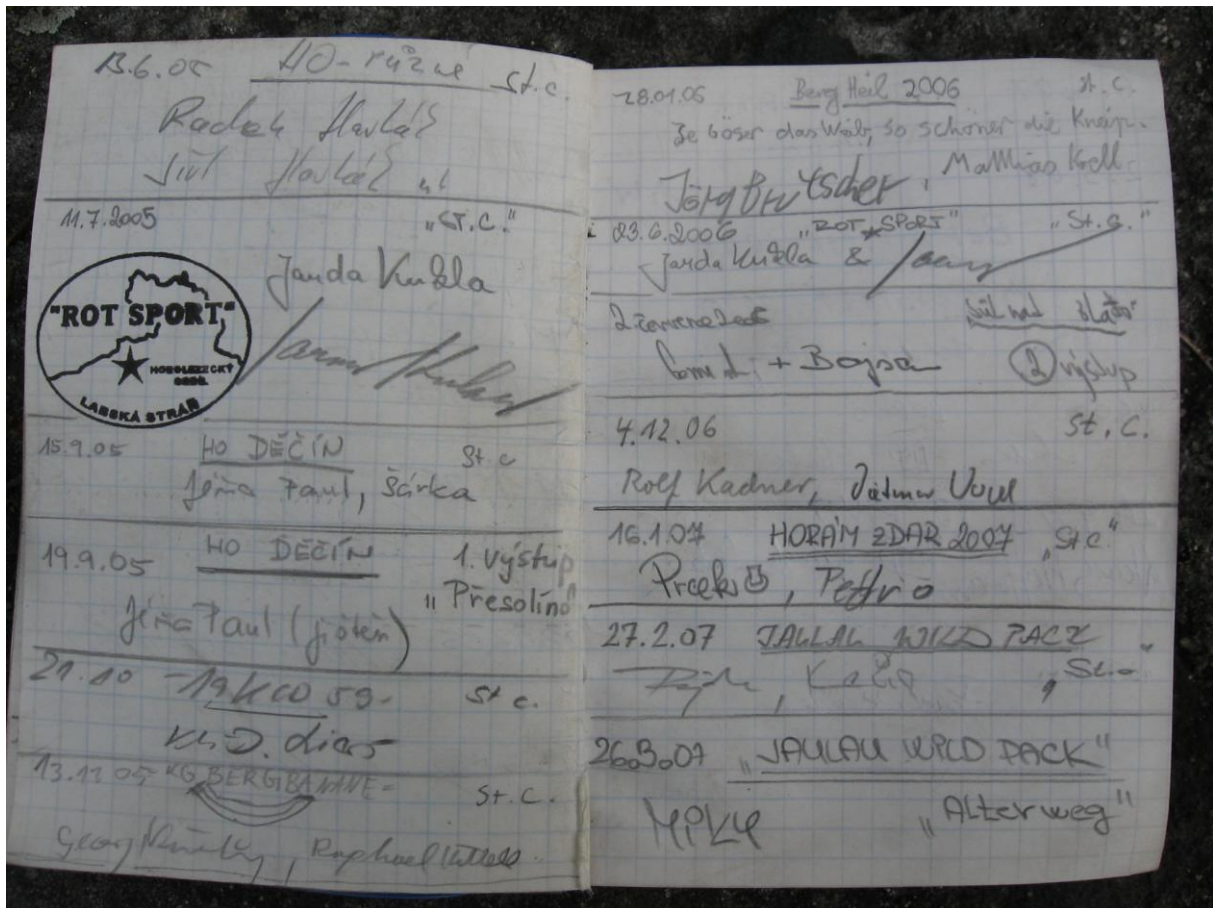 13.6.05 HO-různé st.c.
Radek Havláč
Jiří Havláč
11.7.2005 „ST.C."
Janda Kukla
"ROT SPORT"
HOROLEZECKÝ
ODD.
LABSKÁ STRÁŇ
15.9.05 HO DĚČÍN St.c
Jíňa Paul, Šárka
19.9.05 HO DĚČÍN 1. výstup
„Přesolíno"
Jíňa Paul (jištěn)
21.10 -19KCO 59- st c.
13.11 05 KG BERGBANANE- St.C.
Georg , Raphael
28.01.06 Berg Heil 2006 st.c.
Je böser das Weib, so schöner die Kneip.
Jörg Brutscher, Matthias Krell
23.6.2006 „ROT SPORT" „St.c."
Janda Kukla &
2. července 2006 „sůl nad zlato"
+ Bojsa 2 výstup
4.12.06 St.C.
Rolf Kadner, Dietmar
16.1.07 HORÁM ZDAR 2007 „St.c"
Prcek, Petř
27.2.07 JAULAU WILD PACK
„St.c"
26.3.07 „JAULAU WILD PACK"
MIKY „Alterweg"